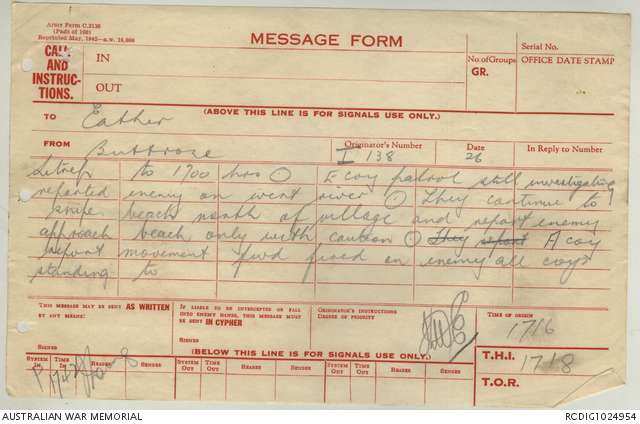 Army Form C.2136
(Pads of 100)
Reprinted May, 1942
MESSAGE FORM
Serial No.
CALL
AND
INSTRUC-
TIONS.
IN
OUT
No. of Groups
GR.
OFFICE DATE STAMP
(ABOVE THIS LINE IS FOR SIGNALS USE ONLY.)
TO Eather
FROM Buttrose
Originator's Number
I 138
Date
26
In Reply to Number
Sitrep to 1700 hrs E coy patrol still investigating
reported enemy on west river They continue to
snipe beach north of village and report enemy
approach beach only with caution They report A coy
report movement fwd fired on enemy all coys
standing to
THIS MESSAGE MAY BE SENT AS WRITTEN
BY ANY MEANS:
SIGNED
IF LIABLE TO BE INTERCEPTED OR FALL
INTO ENEMY HANDS, THIS MESSAGE MUST
BE SENT IN CYPHER
SIGNED
ORIGINATOR'S INSTRUCTIONS
DEGREE OF PRIORITY
TIME OF ORIGIN
1716
(BELOW THIS LINE IS FOR SIGNALS USE ONLY.)
T.H.I. 1718
T.O.R.
SYSTEM IN TIME IN READER SENDER SYSTEM OUT TIME OUT READER SENDER SYSTEM OUT TIME OUT READER SENDER
AUSTRALIAN WAR MEMORIAL
RCDIG1024954